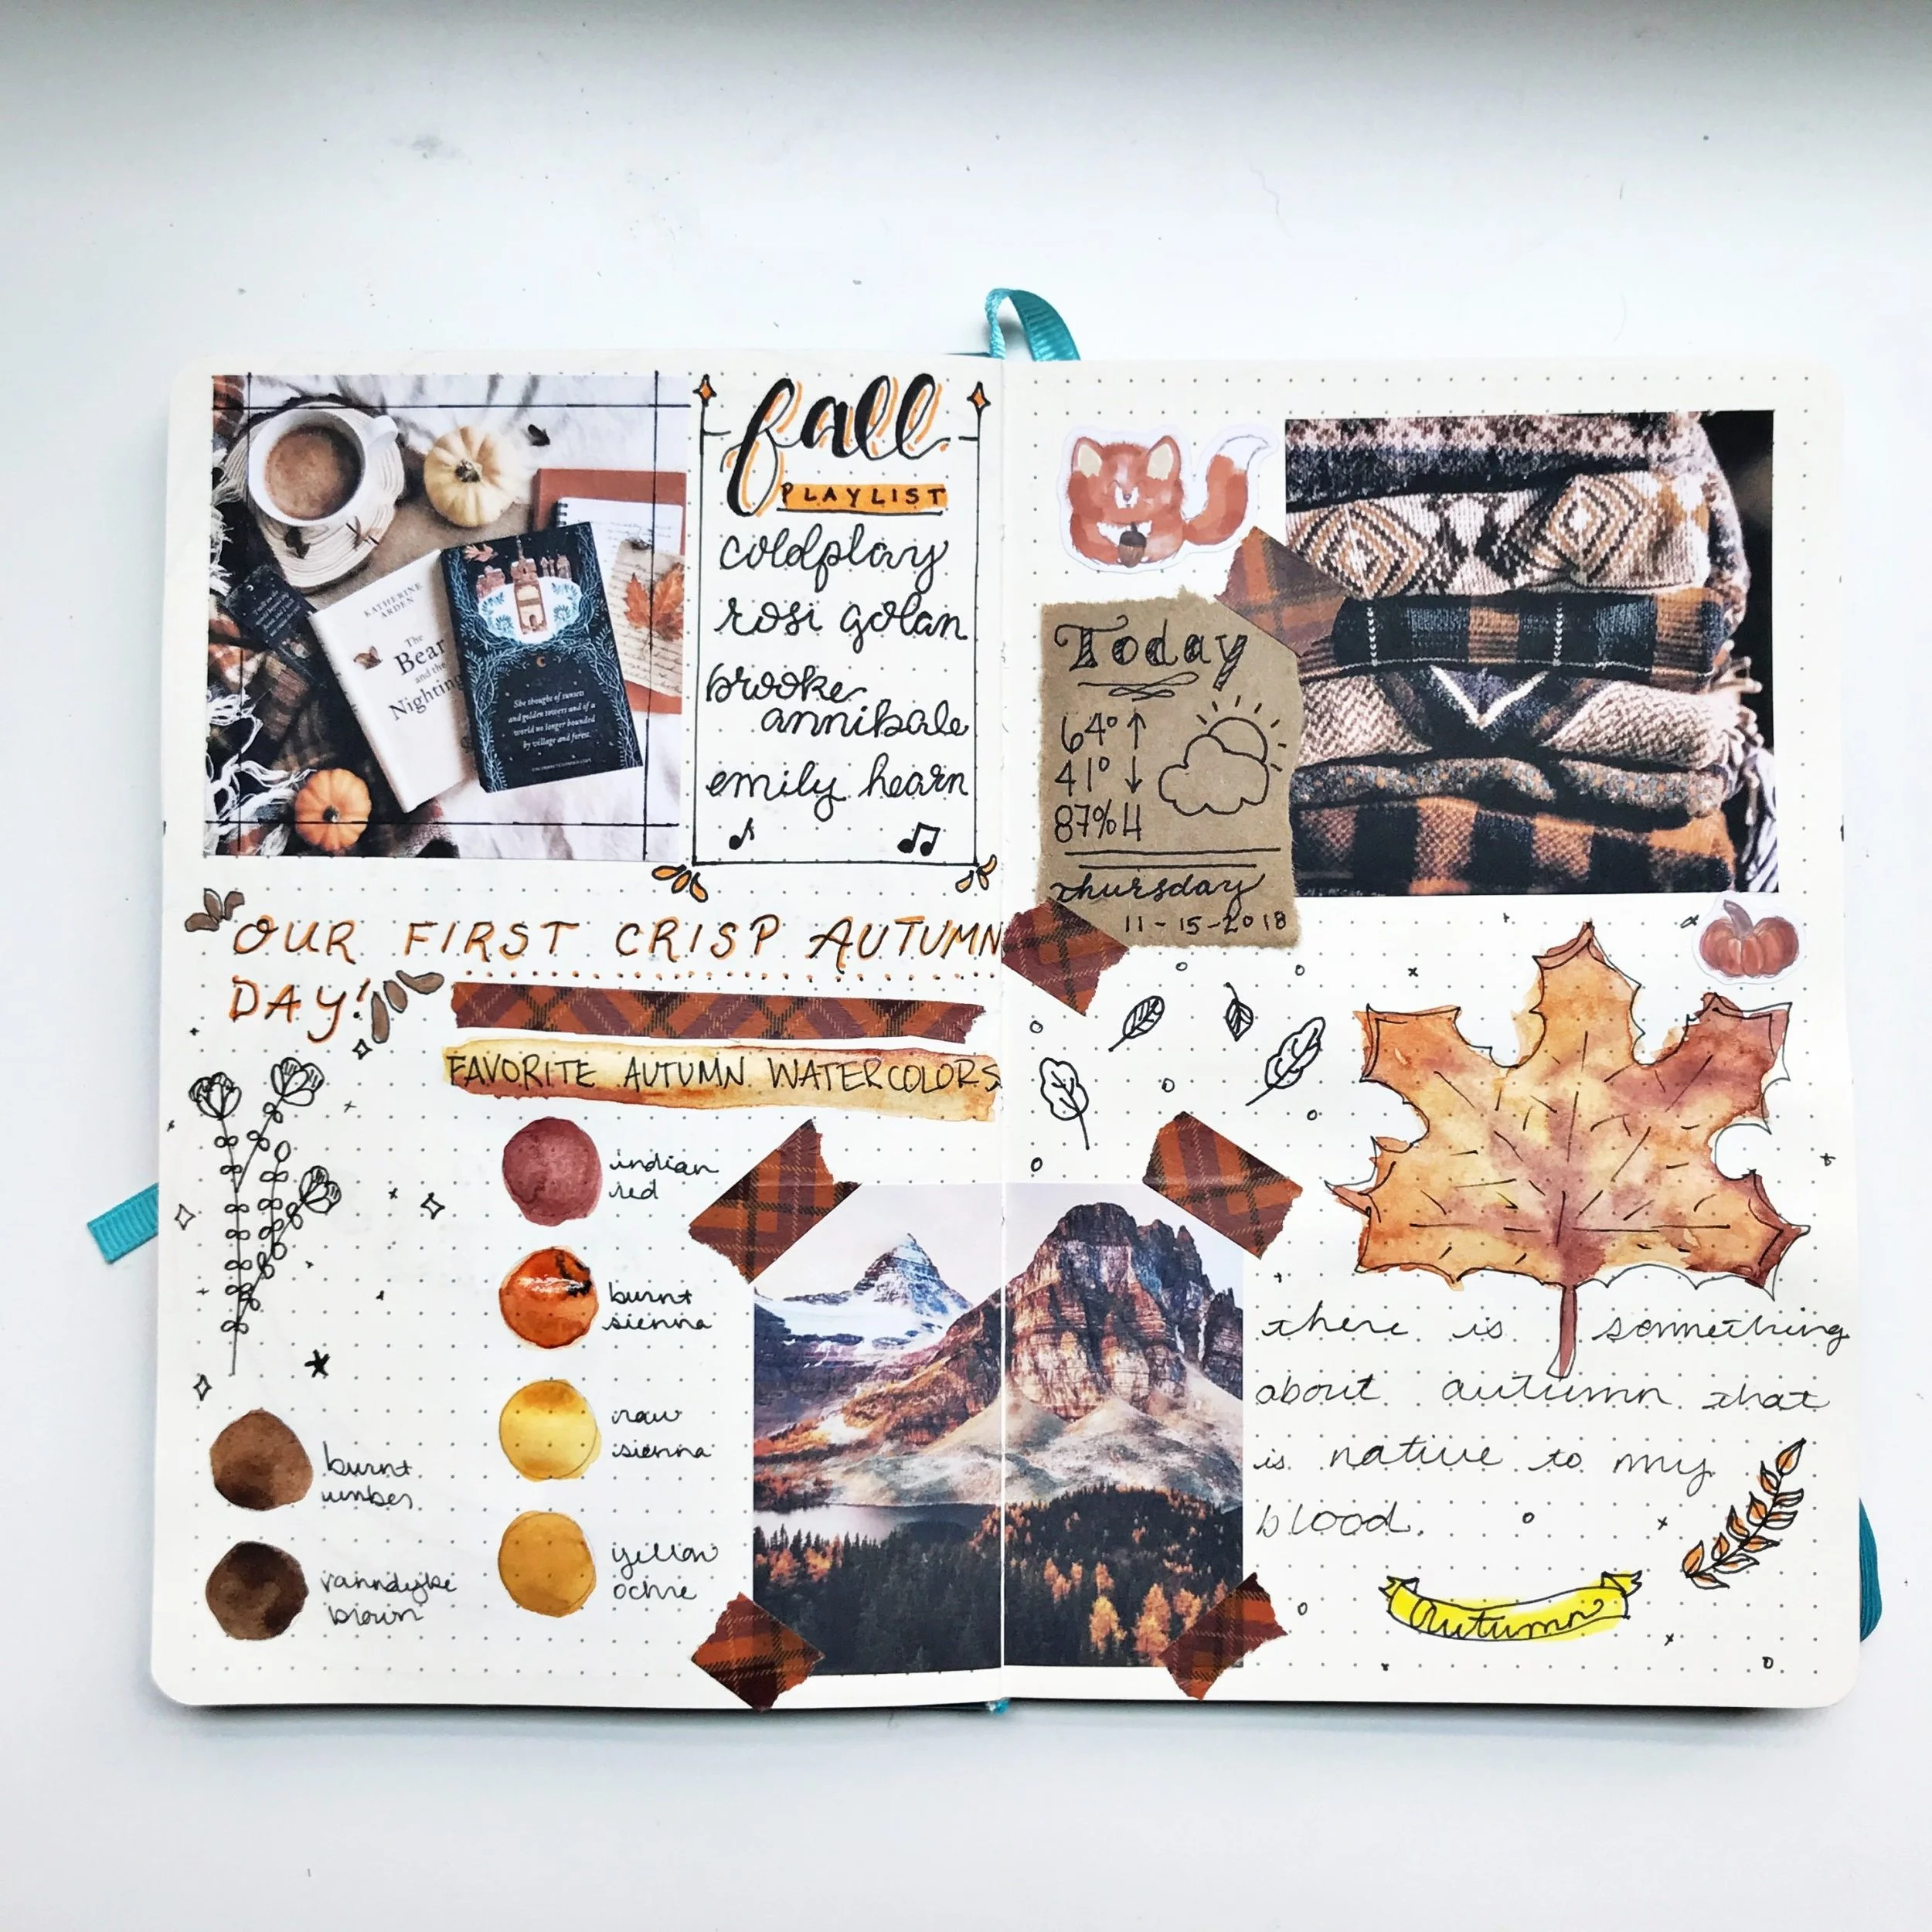 fall
PLAYLIST
coldplay
rosi golan
brooke
annibale
emily hearn
KATHERINE
ARDEN
The
Bear
and the
Nighting
She thoughts of sunsets
and golden towers and of a
world no longer bounded
by village and forest.
OUR FIRST CRISP AUTUMN
DAY!
FAVORITE AUTUMN WATERCOLORS
indian
red
burnt
sienna
raw
sienna
yellow
ochre
burnt
umber
vanndyke
brown
Today
64° ↑
41° ↓
87% H
thursday
11-15-2018
there is something
about autumn that
is native to my
blood.
Autumn